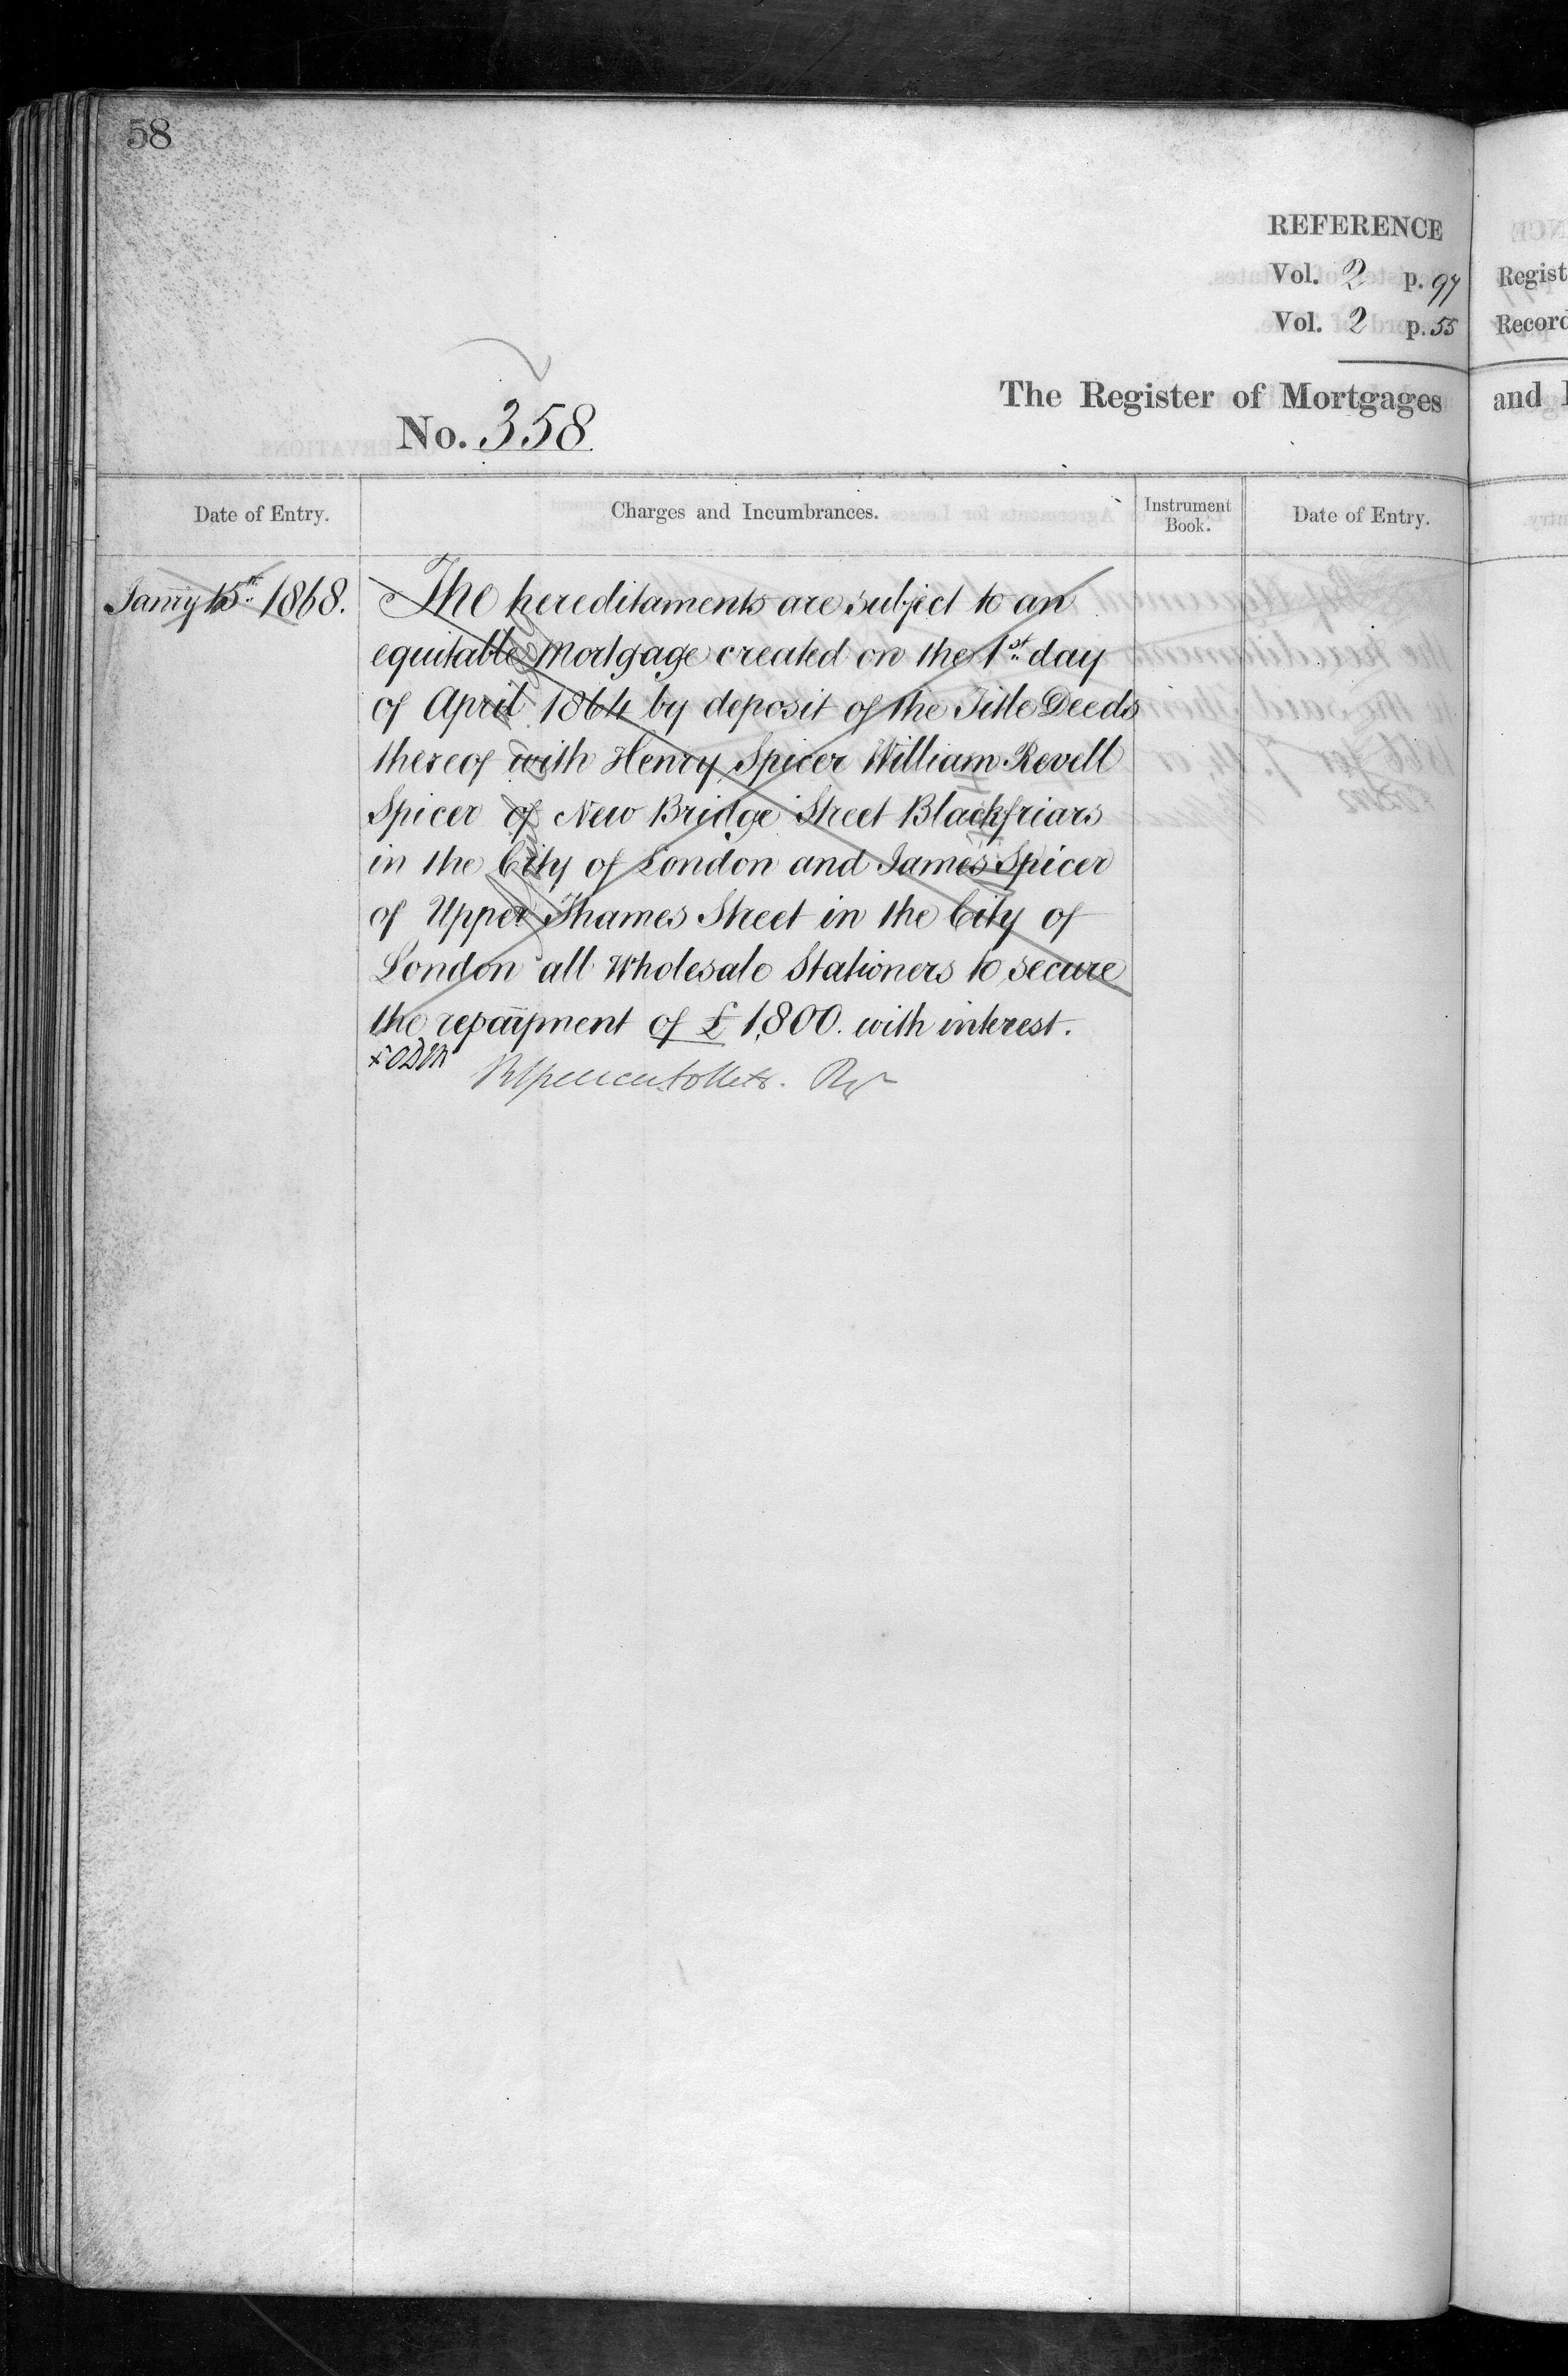 58
REFERENCE
Vol. 2 p. 97
Vol. 2 p. 55
Regist
Record
The Register of Mortgages
and
No. 358
Date of Entry.
Charges and Incumbrances.
Instrument Book.
Date of Entry.
Janry 15th 1868.
The hereditaments are subject to an
equitable Mortgage created on the 1st day
of April 1864 by deposit of the Title Deeds
thereof with Henry Spicer William Revell
Spicer of New Bridge Street Blackfriars
in the City of London and James Spicer
of Upper Thames Street in the City of
London all Wholesale Stationers to secure
the repayment of £1,800. with interest.